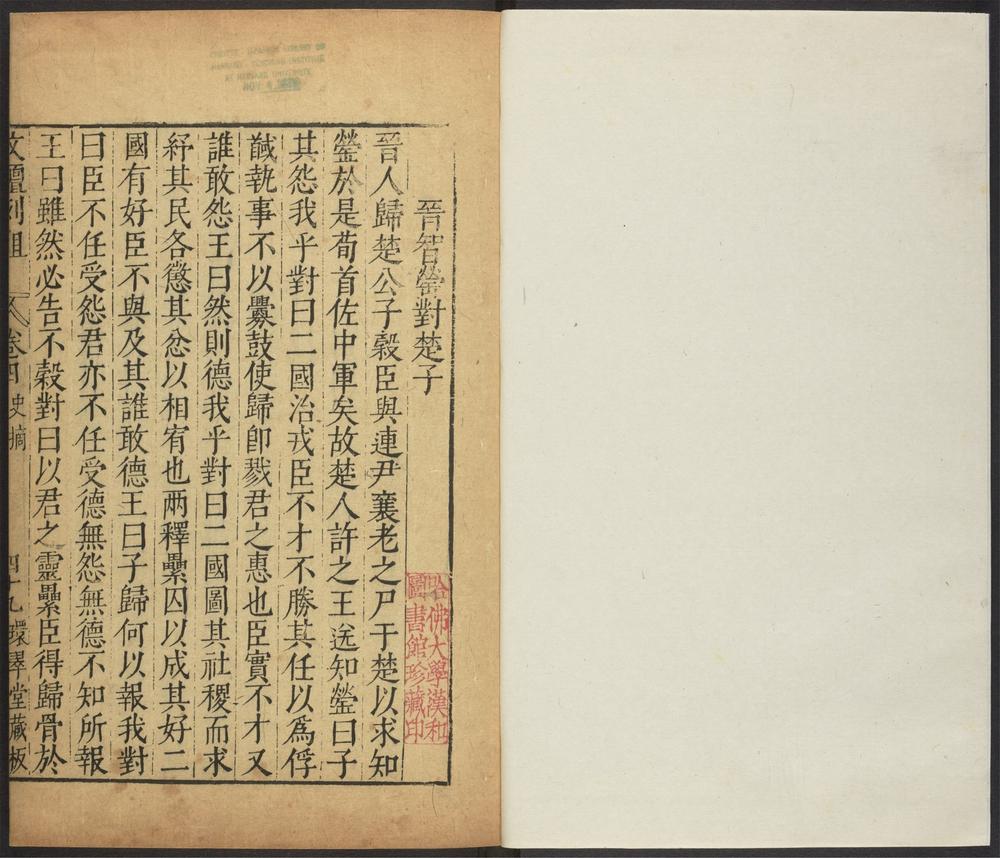 晉智罃對楚子
晉人歸楚公子穀臣與連尹襄老之尸于楚以求知
罃於是荀首佐中軍矣故楚人許之王送知罃曰子
其怨我乎對曰二國治戎臣不才不勝其任以爲俘
馘執事不以釁鼓使歸卽戮君之惠也臣實不才又
誰敢怨王曰然則德我乎對曰二國圖其社稷而求
紓其民各懲其忿以相宥也兩釋纍囚以成其好二
國有好臣不與及其誰敢德王曰子歸何以報我對
曰臣不任受怨君亦不任受德無怨無德不知所報
王曰雖然必告不穀對曰以君之靈纍臣得歸骨於
文壇列俎 卷四 史摘 四十九 環翠堂藏板
哈佛大學漢和
圖書館珍藏印
CHINESE - JAPANESE LIBRARY OF
HARVARD - YENCHING INSTITUTE
AT HARVARD UNIVERSITY
NOV